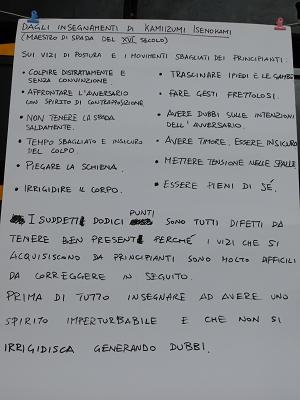 DAGLI INSEGNAMENTI DI KAMIIZUMI ISENOKAMI
(MAESTRO DI SPADA DEL XVI SECOLO)
SUI VIZI DI POSTURA E I MOVIMENTI SBAGLIATI DEI PRINCIPIANTI:
• COLPIRE DISTRATTAMENTE E SENZA CONVINZIONE
• AFFRONTARE L'AVVERSARIO CON SPIRITO DI CONTRAPPOSIZIONE
• NON TENERE LA SPADA SALDAMENTE.
• TEMPO SBAGLIATO E INSICURO DEL COLPO.
• PIEGARE LA SCHIENA.
• IRRIGIDIRE IL CORPO.
• TRASCINARE I PIEDI E LE GAMBE
• FARE GESTI FRETTOLOSI.
• AVERE DUBBI SULLE INTENZIONI DELL'AVVERSARIO.
• AVERE TIMORE, ESSERE INSICURO
• METTERE TENSIONE NELLE SPALLE
• ESSERE PIENI DI SÉ.
I SUDDETTI DODICI PUNTI SONO TUTTI DIFETTI DA
TENERE BEN PRESENTE PERCHÉ I VIZI CHE SI
ACQUISISCONO DA PRINCIPIANTI SONO MOLTO DIFFICILI
DA CORREGGERE IN SEGUITO.
PRIMA DI TUTTO INSEGNARE AD AVERE UNO
SPIRITO IMPERTURBABILE E CHE NON SI
IRRIGIDISCA GENERANDO DUBBI.